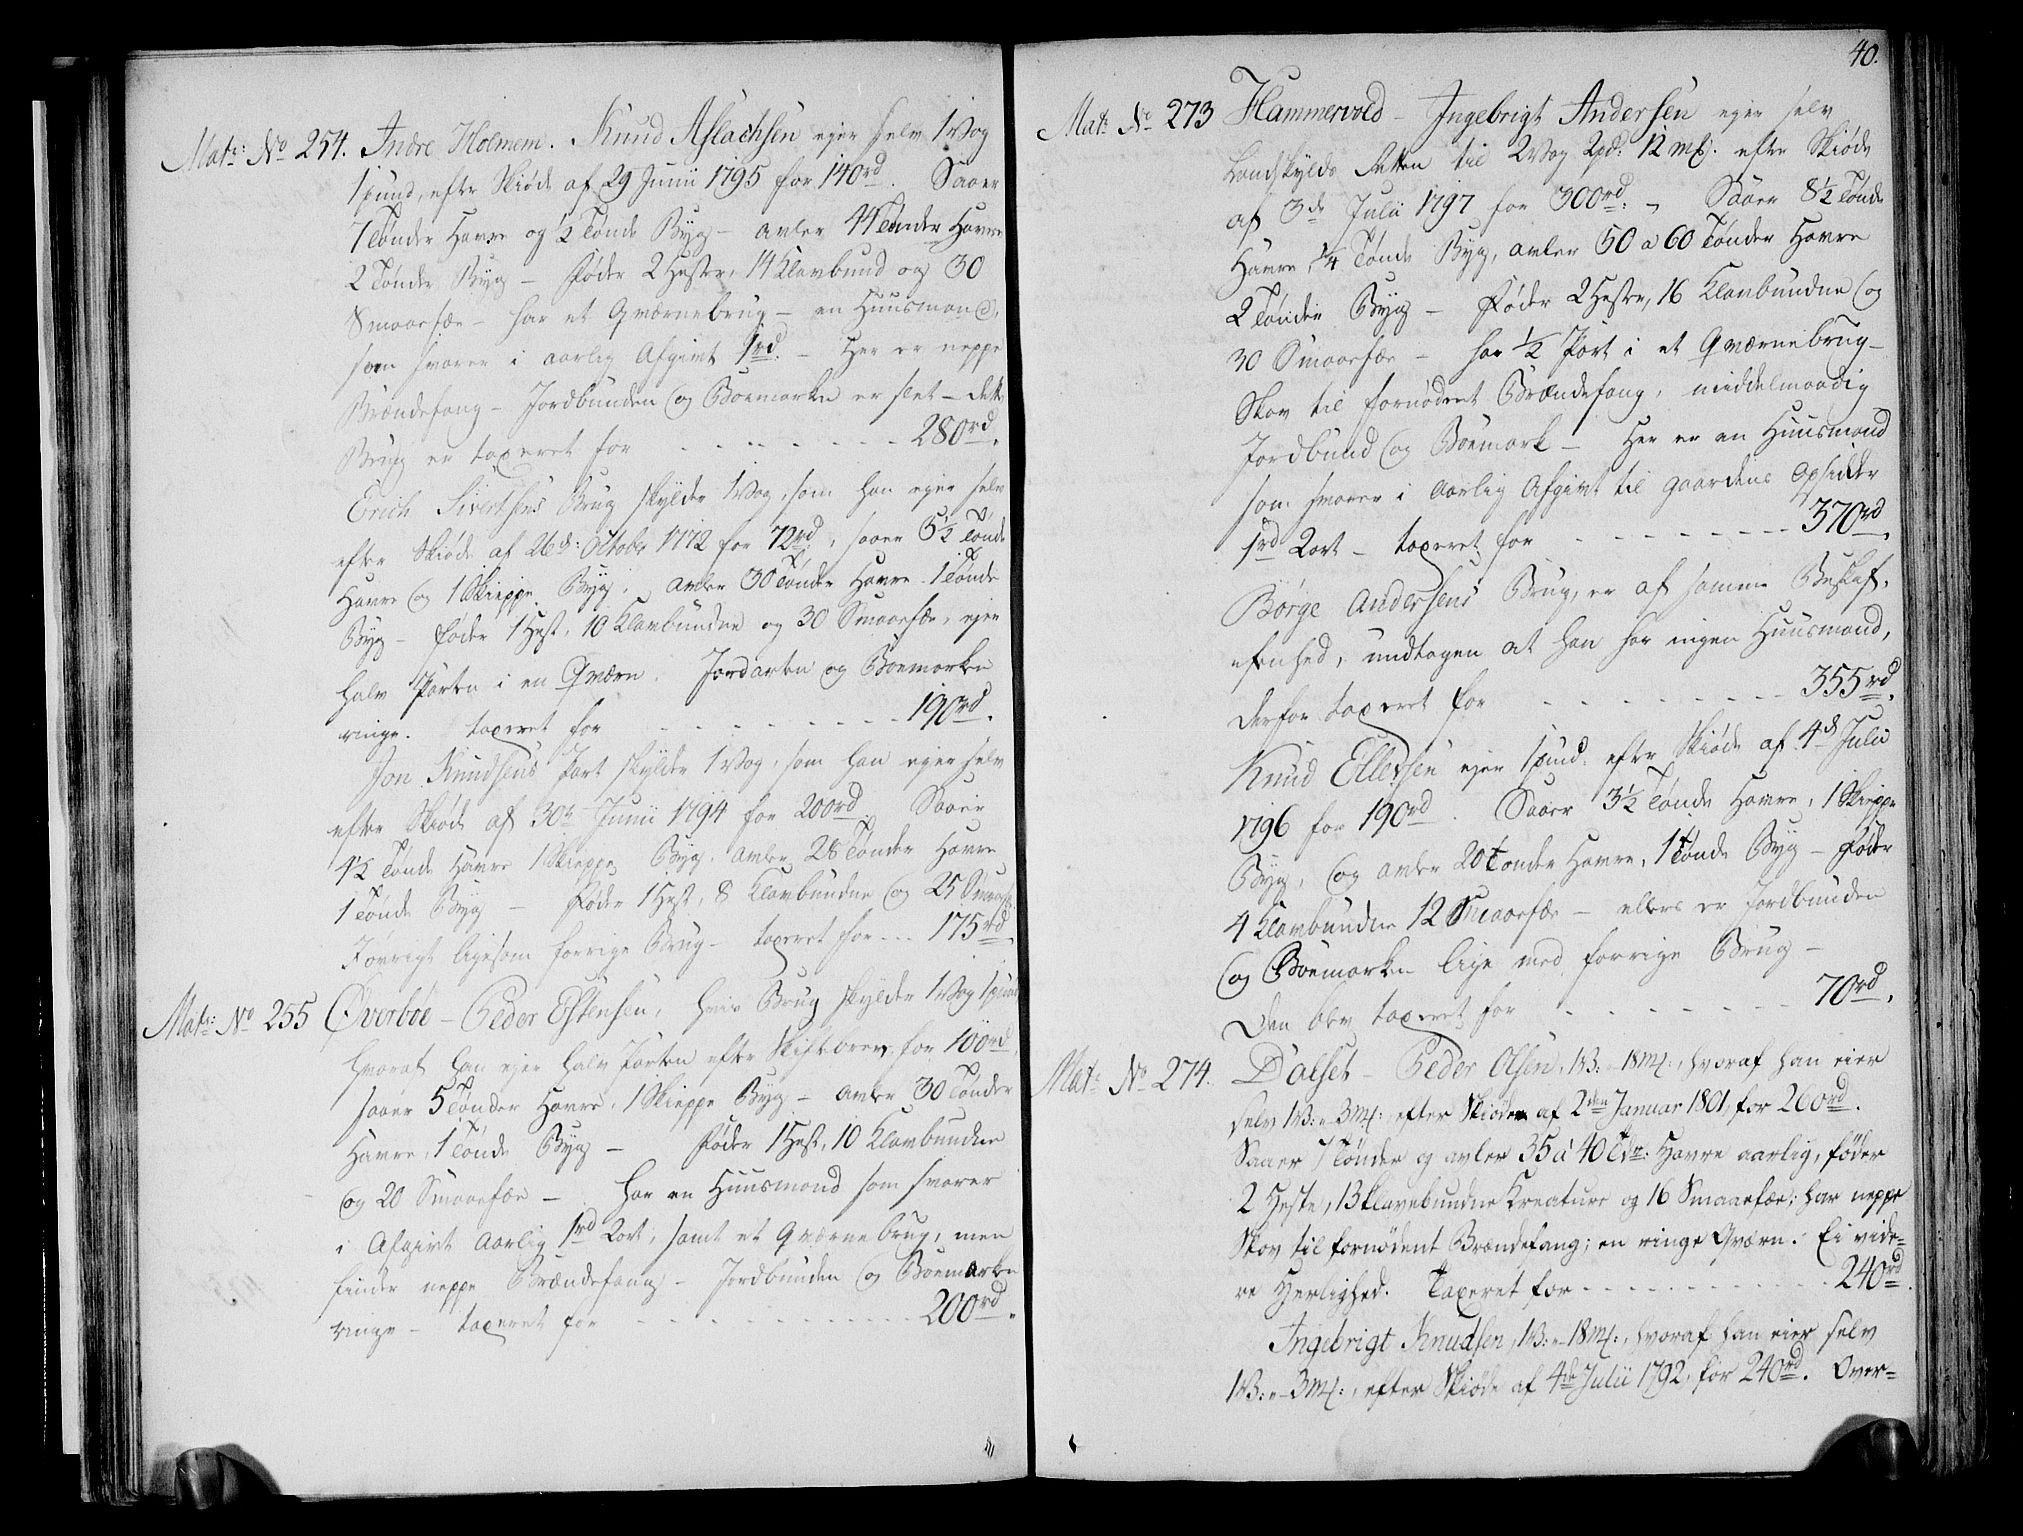 Matr: No 254. Indre Holmem. Knud Aslachsen ejer selv 1 Vog
1 pund, efter Skiøde af 29 Junii 1795 for 140 rd. Saaer
7 Tønder Havre og ½ Tønde Byg – avler 44 Tønder Havre
2 Tønder Byg – føder 2 Heste, 14 Klavbund og 30
Smaafæe – har et Qværnebrug – en Huusmand,
som svarer i aarlig Afgivt 1 rd. – Her er neppe
Brændefang – Jordbunden og Boemarken er slet – dette
Brug er taxeret for - - - - - - - 280 rd.
Erich Sivertsens Brug skylder 1 Vog, som han ejer selv
efter Skiøde af 26d: Octobr 1772 for 72 rd, saaer 5½ Tønde
Havre og 1 Skieppe Byg, avler 30 Tønder Havre 1 Tønde
Byg – føder 1 Hest, 10 Klavbundne og 30 Smaafæe, ejer
halv Parten i en Qværn. Jordarten og Boemarken
ringe. taxeret for - - - - - - - 190 rd.
Jon Knudsens Part skylder 1 Vog, som han ejer selv
efter Skiøde af 30te Junii 1794 for 200 rd Saaer
4½ Tønde Havre 1 Skieppe Byg, avler 28 Tønder Havre
1 Tønde Byg – føder 1 Hest, 8 Klavbundne og 25 Smaafæe
I øvrigt ligesom forrige Brug – taxeret for - - - 175 rd.
Matr: No 255 Øverboe – Peder Estensen, hvis Brug skylder 1 Vog 1 pund
hvoraf han ejer halv Parten efter Skiftebrev for 100 rd,
saaer 5 Tønder Havre, 1 Skieppe Byg – avler 30 Tønder
Havre, 1 Tønde Byg – føder 1 Hest, 10 Klavbundne
og 20 Smaafæe – har en Huusmand som svarer
i Afgivt aarlig 1 rd 2 ort, samt et Qværnebrug, men
finder neppe Brændefang – Jordbunden og Boemarken
ringe – taxeret for - - - - - - - 200 rd.
40.
Matr No 273 Hammervold – Ingebrigt Andersen ejer selv
Landskylds Retten til 2 Vog 2 pd: 12 mk. efter Skiøde
af 3de Julii 1797 for 300 rd: – Saaer 8½ Tønde
Havre, ¼ Tønde Byg, avler 50 a 60 Tønder Havre
2 Tønder Byg – føder 2 Heste, 16 Klavbundne og
30 Smaafæe – har ½ Part i et Qværnebrug –
Skov til fornødent Brændefang, middelmaadig
Jordbund og Boemark – Her er en Huusmand
som svarer i aarlig Afgivt til Gaardens Opsidder
1 rd 2 ort – taxeret for - - - - - - - 370 rd.
Børge Andersens Brug, er af samme Beskaf,
fenhed, undtagen at han har ingen Huusmand,
derfor taxeret for - - - - - - - 355 rd.
Knud Ellefsen ejer 1 pund. efter Skiøde af 4de Julii
1796 for 190 rd. Saaer 3½ Tønde Havre, 1 Skieppe
Byg, og avler 20 Tønder Havre, 1 Tønde Byg – føder
4 Klavbundne 12 Smaafæe – ellers er Jordbunden
og Boemarken lige med forrige Brug –
Den blev taxeret for - - - - - - - 70 rd.
Matr No 274. Dalset – Peder Olsen, 1 V: – 18 mk:, hvoraf han eier
selv 1 V: – 3 mk: efter Skiøde af 2den Januar 1801, for 260 rd.
Saaer 7 Tønder og avler 35 à 40 Tdr: Havre aarlig, føder
2 Heste, 13 klavebundne Kreature og 16 Smaafæe; har neppe
Skov til fornødent Brændefang; en ringe Qværn. Ei vide=
re Herlighed. Taxeret for - - - - - - - 240 rd.
Ingebrigt Knudsen, 1 V: – 18 mk:, hvoraf han eier selv
1 V: – 3 mk:, efter Skiøde af 4de Julii 1792, for 240 rd. Over=